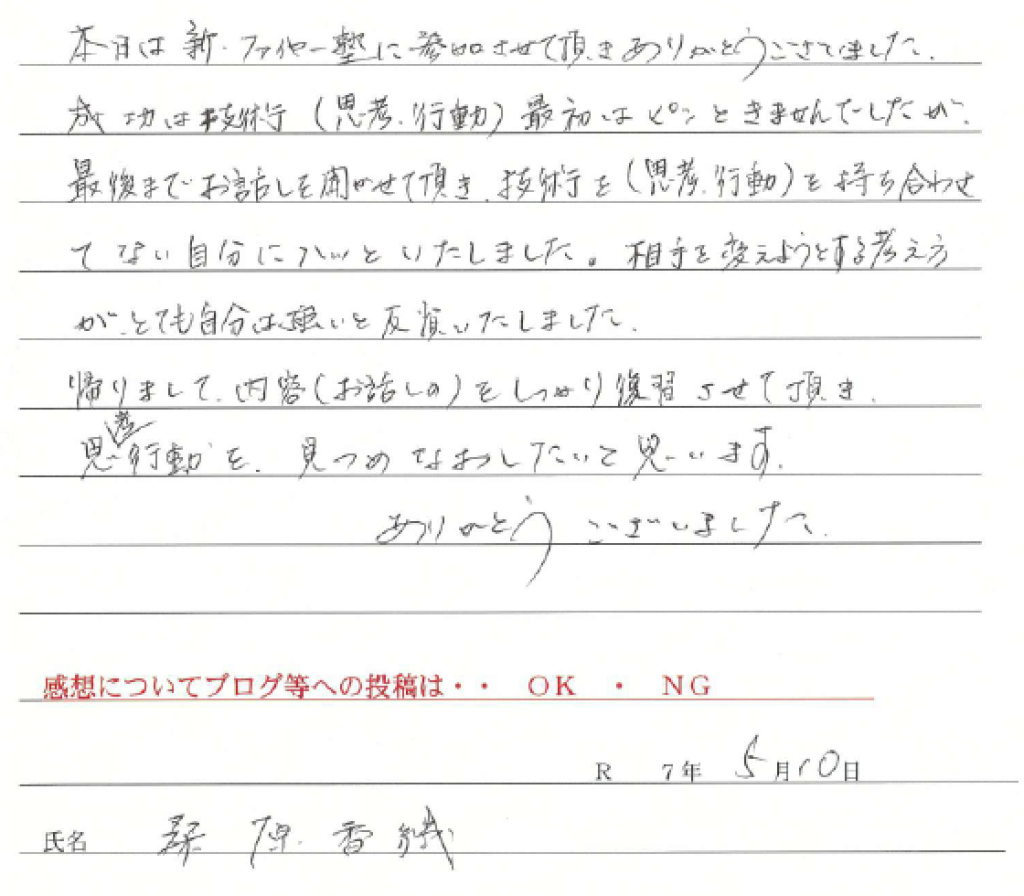 本日は新・ファイヤー塾に参加させて頂きありがとうございました。
成功は技術行(思考・行動)最初はピンときませんでしたが、
最後までお話しを聞かせて頂き、技術行を(思考・行動)を持ち合わせ
てない自分にハッといたしました。相手を変えようとする考え方
が、とても自分は強いと反省いたしました。
帰りまして、内容(お話しの)をしっかり復習させて頂き、
思考行動を、見つめなおしたいと思います。
ありがとうございました。
感想についてブログ等への投稿は・・ OK ・ NG
R 7年 5月10日
氏名 桑原香織